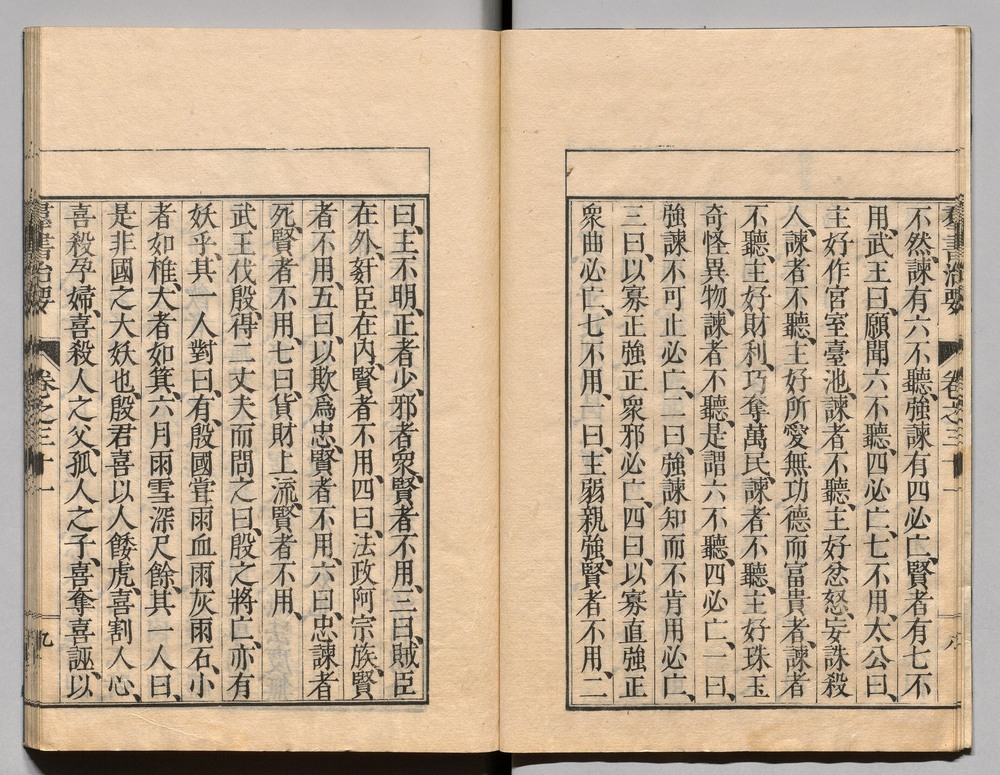 羣書治要 卷之三十一 八
不然、諫有六不聽、強諫有四必亡、賢者有七不
用、武王曰、願聞六不聽、四必亡、七不用、太公曰、
主好作宮室臺池、諫者不聽、主好忿怒、妄誅殺
人、諫者不聽、主好所愛無功德而富貴者、諫者
不聽、主好財利、巧奪萬民、諫者不聽、主好珠玉
奇怪異物、諫者不聽、是謂六不聽、四必亡、一曰、
強諫不可止必亡、二曰、強諫知而不肯用必亡、
三曰、以寡正強正眾邪必亡、四曰、以寡直強正
眾曲必亡、七不用、一曰、主弱親強、賢者不用、二
曰、主不明、正者少、邪者衆、賢者不用、三曰、賊臣
在外、姧臣在內、賢者不用、四曰、法政阿宗族、賢
者不用、五曰、以欺爲忠、賢者不用、六曰、忠諫者
死、賢者不用、七曰、貨財上流、賢者不用、
武王伐殷、得二丈夫而問之曰、殷之將亡、亦有
妖乎、其一人對曰、有、殷國甞雨血雨灰雨石、小
者如椎、大者如箕、六月雨雪深尺餘、其一人曰、
是非國之大妖也、殷君喜以人餧虎、喜割人心、
喜殺孕婦、喜殺人之父、孤人之子、喜奪喜誣、以
羣書治要 卷之三十一 九